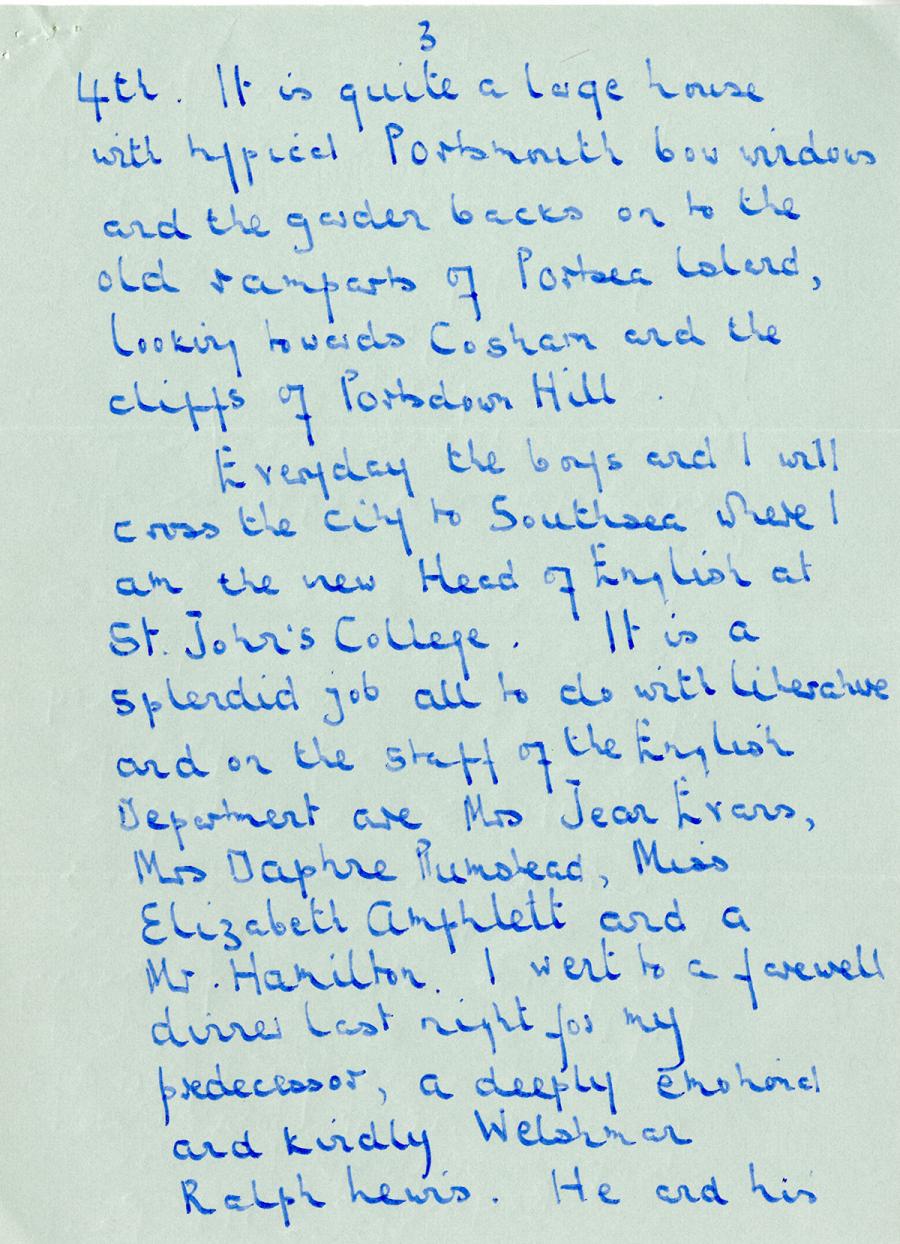 3
4th. It is quite a large house
with typical Portsmouth bow windows
and the garden backs on to the
old ramparts of Portsea Island,
looking towards Cosham and the
cliffs of Portsdown Hill.
Everyday the boys and I will
cross the city to Southsea where I
am the new Head of English at
St. John's College. It is a
splendid job all to do with literature
and on the staff of the English
Department are Mrs Jean Evans,
Mrs Daphne Plumstead, Miss
Elizabeth Amphlett and a
Mr. Hamilton. I went to a farewell
dinner last night for my
predecessor, a deeply emotional
and kindly Welshman
Ralph Lewis. He and his